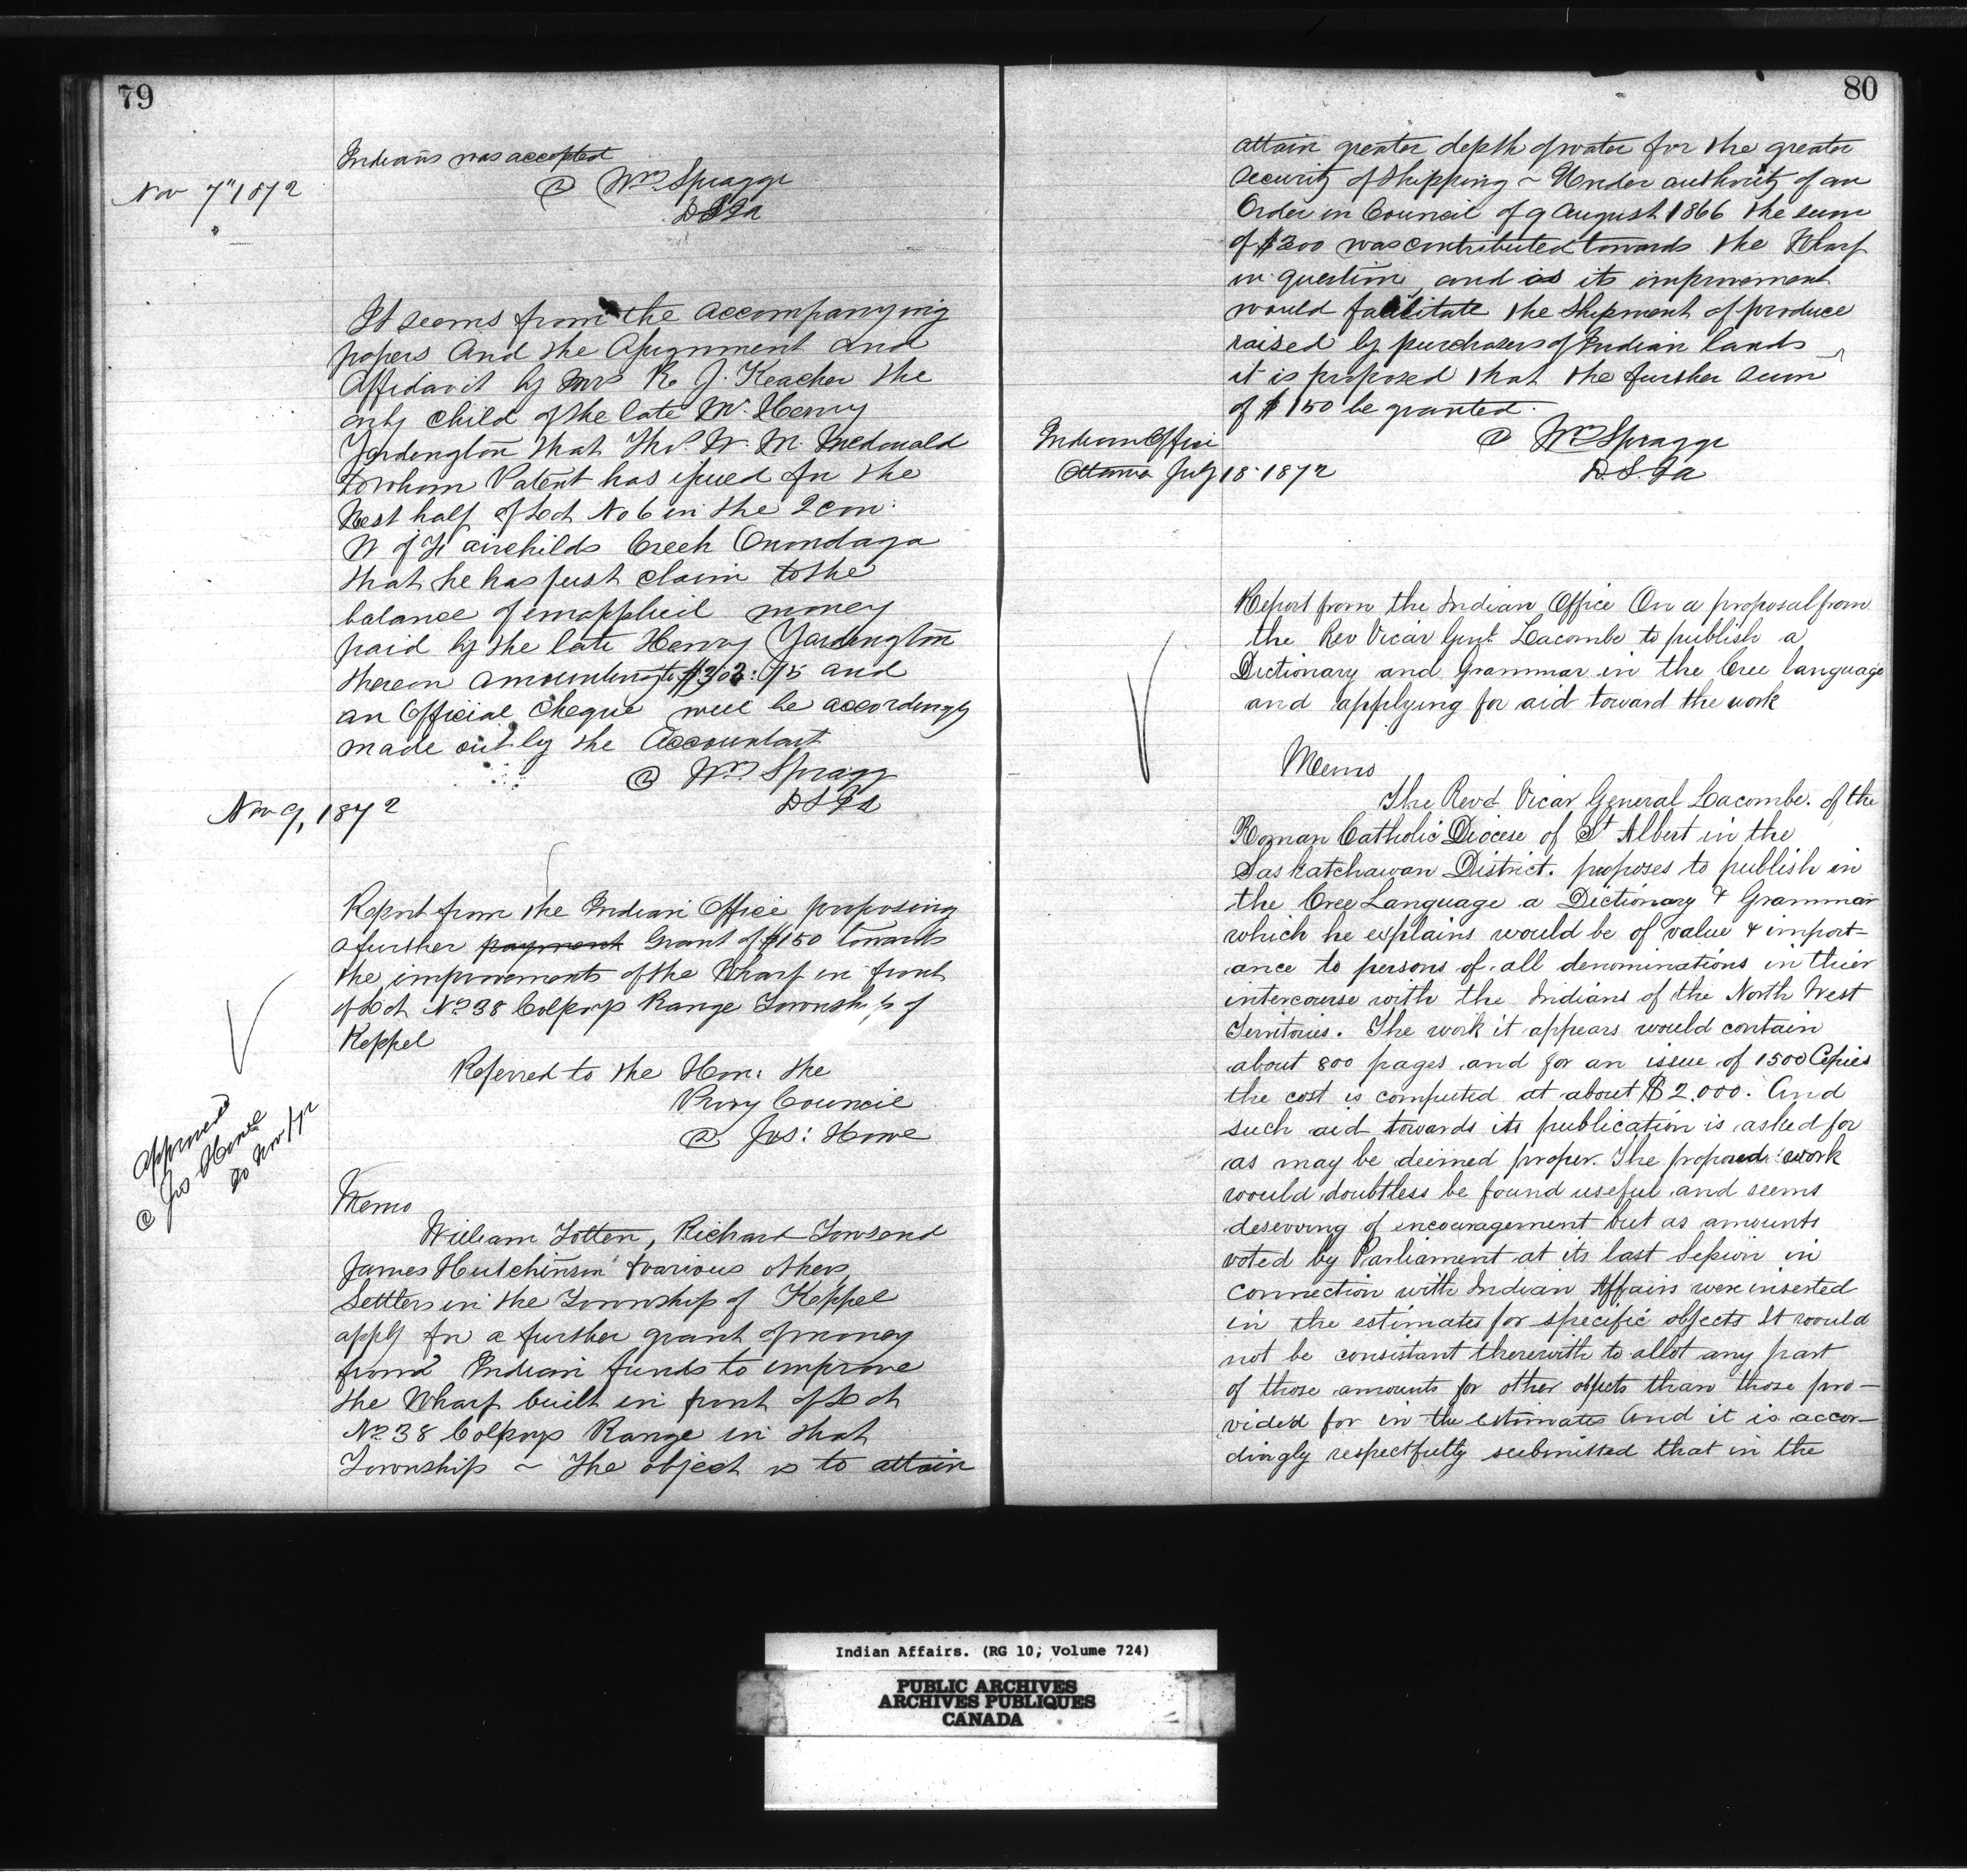 79
Indians was accepted
@ Wm Spragge
DSIA
Nov 7" 1872
It seems from the accompanying
papers And the Assignment and
Affidavit by Mrs R. J. Keacher the
only child of the late Mr. Henry
Yardington that Thos. W. M. McDonald
to whom Patent has issued for the
West half of Lot No 6 in the 2 con:
W of Fairchilds Creek Onondaga
that he has just claim to the
balance of unapplied money
paid by the late Henry Yardington
thereon amounting to $303:75 and
an Official Cheque will be accordingly
made out by the Accountant
@ Wm Spragg
DSIA
Nov 9, 1872
Report from the Indian Office proposing
a further payment Grant of $150 towards
the improvements of the Wharf in front
of Lot No 38 Colpoys Range Township of
Keppel
Referred to the Hon: the
Privy Council
@ Jos: Howe
approved
@ Jos Howe
20 Nov /72
Memo
William Totten, Richard Townsend
James Hutchinson & various others
Settlers in the Township of Keppel
apply for a further grant of money
from Indian funds to improve
the Wharf built in front of Lot
No 38 Colpoys Range in that
Township ~ The object is to attain
80
attain greater depth of water for the greater
security of Shipping ~ Under authority of an
Order in Council of 9 August 1866 the sum
of $300 was contributed towards the Wharf
in question, and as its improvement
would facilitate the Shipment of produce
raised by purchasers of Indian lands
it is proposed that the further sum
of $150 be granted.
@ Wm Spragge
D.S.IA
Indian Office
Ottawa July 18 1872
Report from the Indian Office On a proposal from
the Rev Vicar Genl. Lacombe to publish a
Dictionary and Grammar in the Cree language
and applying for aid toward the work
Memo
The Revd Vicar General Lacombe. of the
Roman Catholic Diocese of St Albert in the
Saskatchawan District. proposes to publish in
the Cree Language a Dictionary & Grammar
which he explains would be of value & import-
ance to persons of all denominations in thier
intercourse with the Indians of the North West
Territories. The work it appears would contain
about 800 pages and for an issue of 1500 Copies
the cost is computed at about $2.000. And
such aid towards its publication is asked for
as may be deemed proper. The proposed work
would doubtless be found useful and seems
deserving of encouragement but as amounts
voted by Parliament at its last Session in
connection with Indian Affairs were inserted
in the estimates for specific objects It would
not be consistant therewith to allot any part
of those amounts for other objects than those pro-
vided for in the estimates And it is accor-
dingly respectfully submitted that in the
Indian Affairs. (RG 10, Volume 724)
PUBLIC ARCHIVES
ARCHIVES PUBLIQUES
CANADA